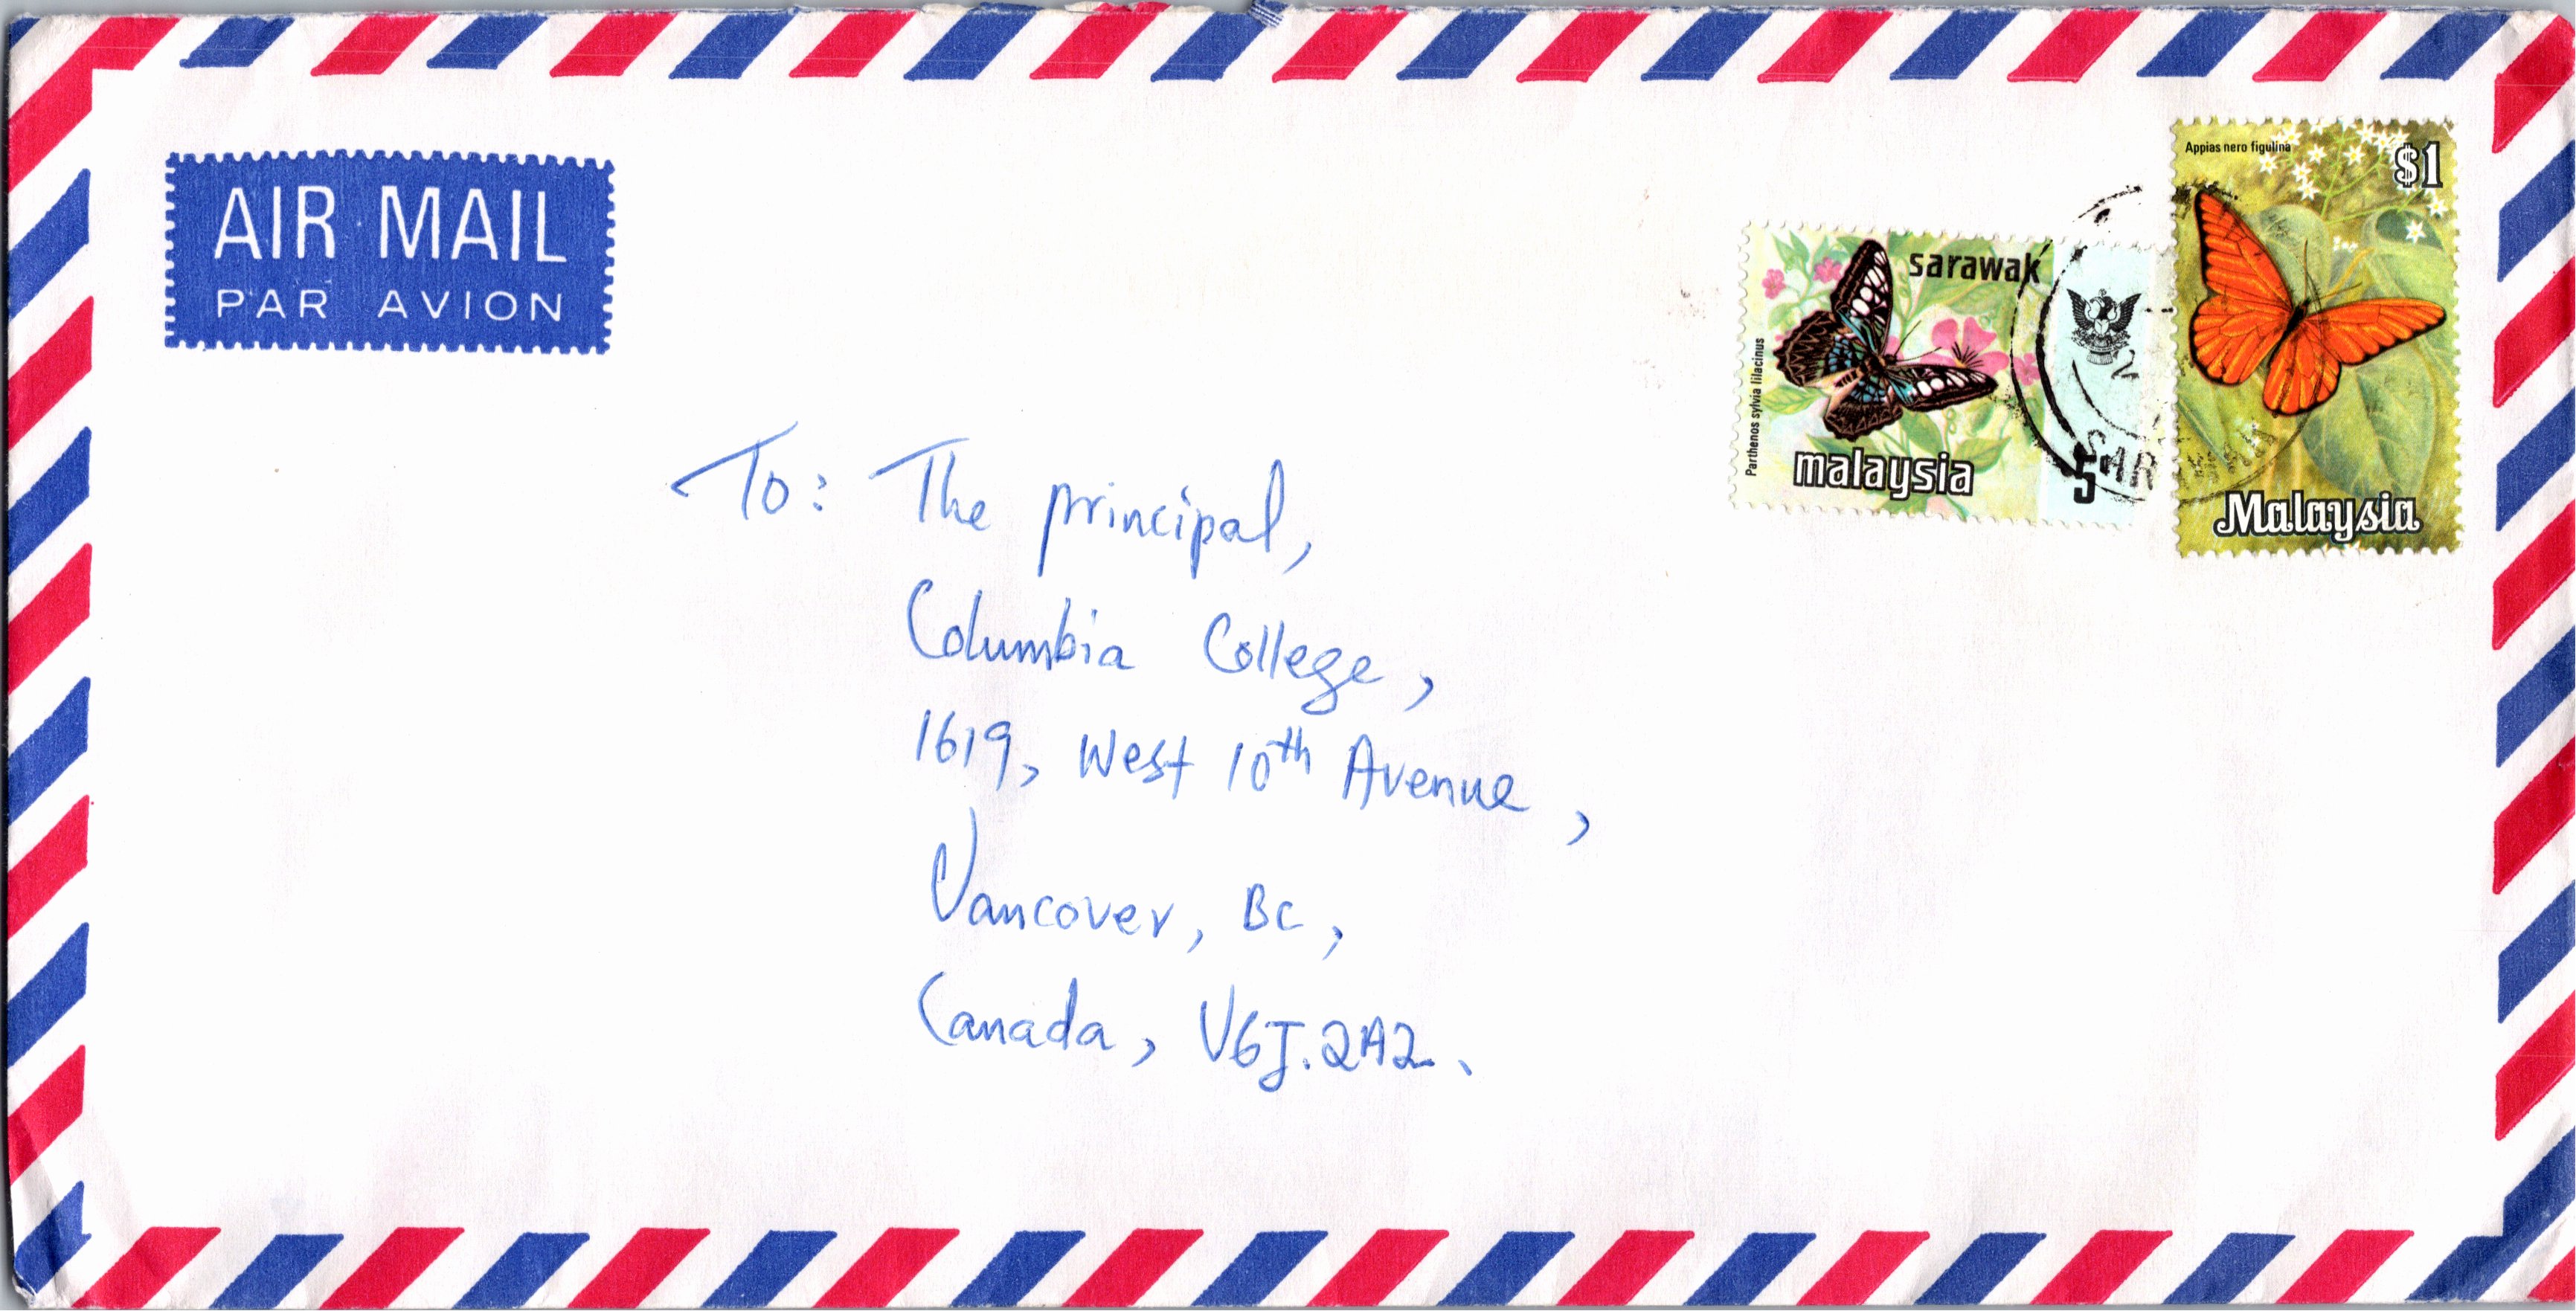 AIR MAIL
PAR AVION
Appias nero figulina
$1
Malaysia
sarawak
Parthenos sylvia lilacinus
malaysia
5
SAR
To: The principal,
Columbia College,
1619, West 10th Avenue,
Vancover, BC,
Canada, V6J.2A2.